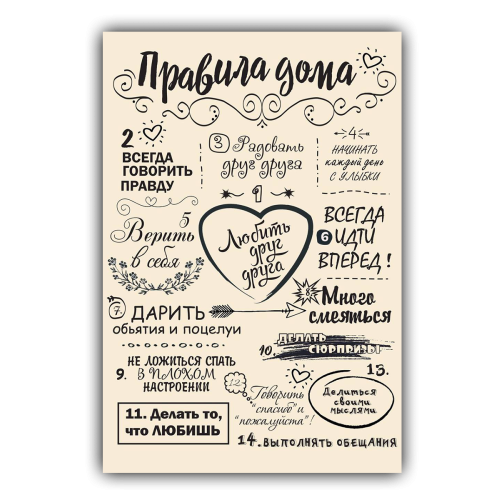 Правила дома
2
ВСЕГДА
ГОВОРИТЬ
ПРАВДУ
3 Радовать
друг друга
4
НАЧИНАТЬ
каждый день
С УЛЫБКИ
1
Любить
друг
друга
5
Верить
в себя
ВСЕГДА
6 ИДТИ
ВПЕРЕД!
7. ДАРИТЬ
обьятия и поцелуи
8
Много
смеяться
9. НЕ ЛОЖИТЬСЯ СПАТЬ
В ПЛОХОМ
НАСТРОЕНИИ
10. ДЕЛАТЬ
СЮРПРИЗЫ
11. Делать то,
что ЛЮБИШЬ
12.
Говорить
"спасибо" и
"пожалуйста"!
13.
Делиться
своими
мыслями
14. ВЫПОЛНЯТЬ ОБЕЩАНИЯ